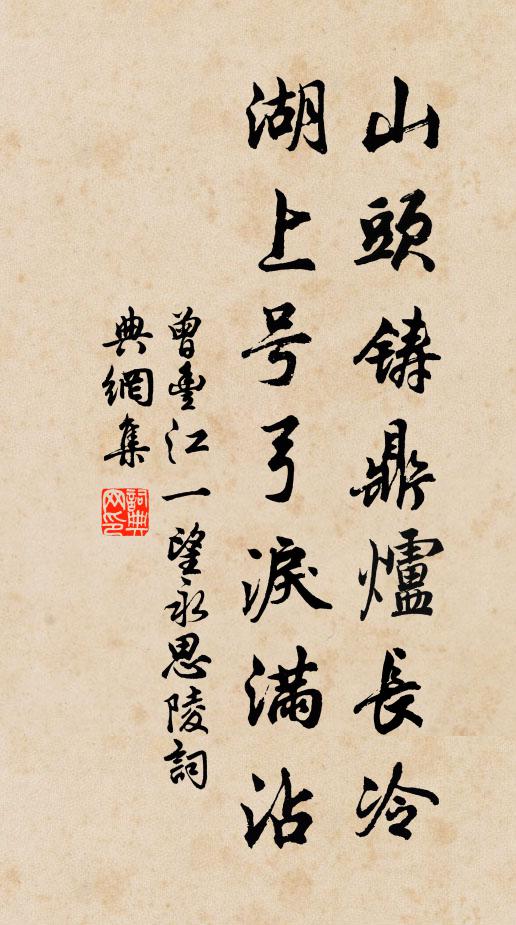 山頭鑄鼎爐長冷
湖上号弓淚滿沾
曾豐江一望永思陵詞
典網集
詞典网印